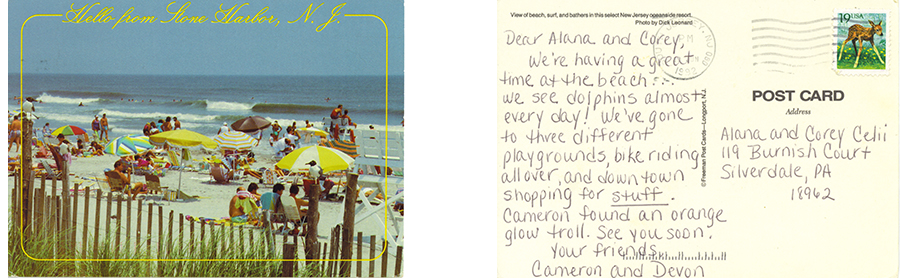 Hello from Stone Harbor, N. J.
View of beach, surf, and bathers in this select New Jersey oceanside resort.
Photo by Dick Leonard
Dear Alana and Corey,
We're having a great
time at the beach...
We see dolphins almost
every day! We've gone
to three different
playgrounds, bike riding
all over, and downtown
shopping for stuff.
Cameron found an orange
glow troll. See you soon.
Your friends,
Cameron and Devon
©Freeman Post Cards—Longport, N.J.
PM
1992
19 USA
POST CARD
Address
Alana and Corey Celii
119 Burnish Court
Silverdale, PA
18962